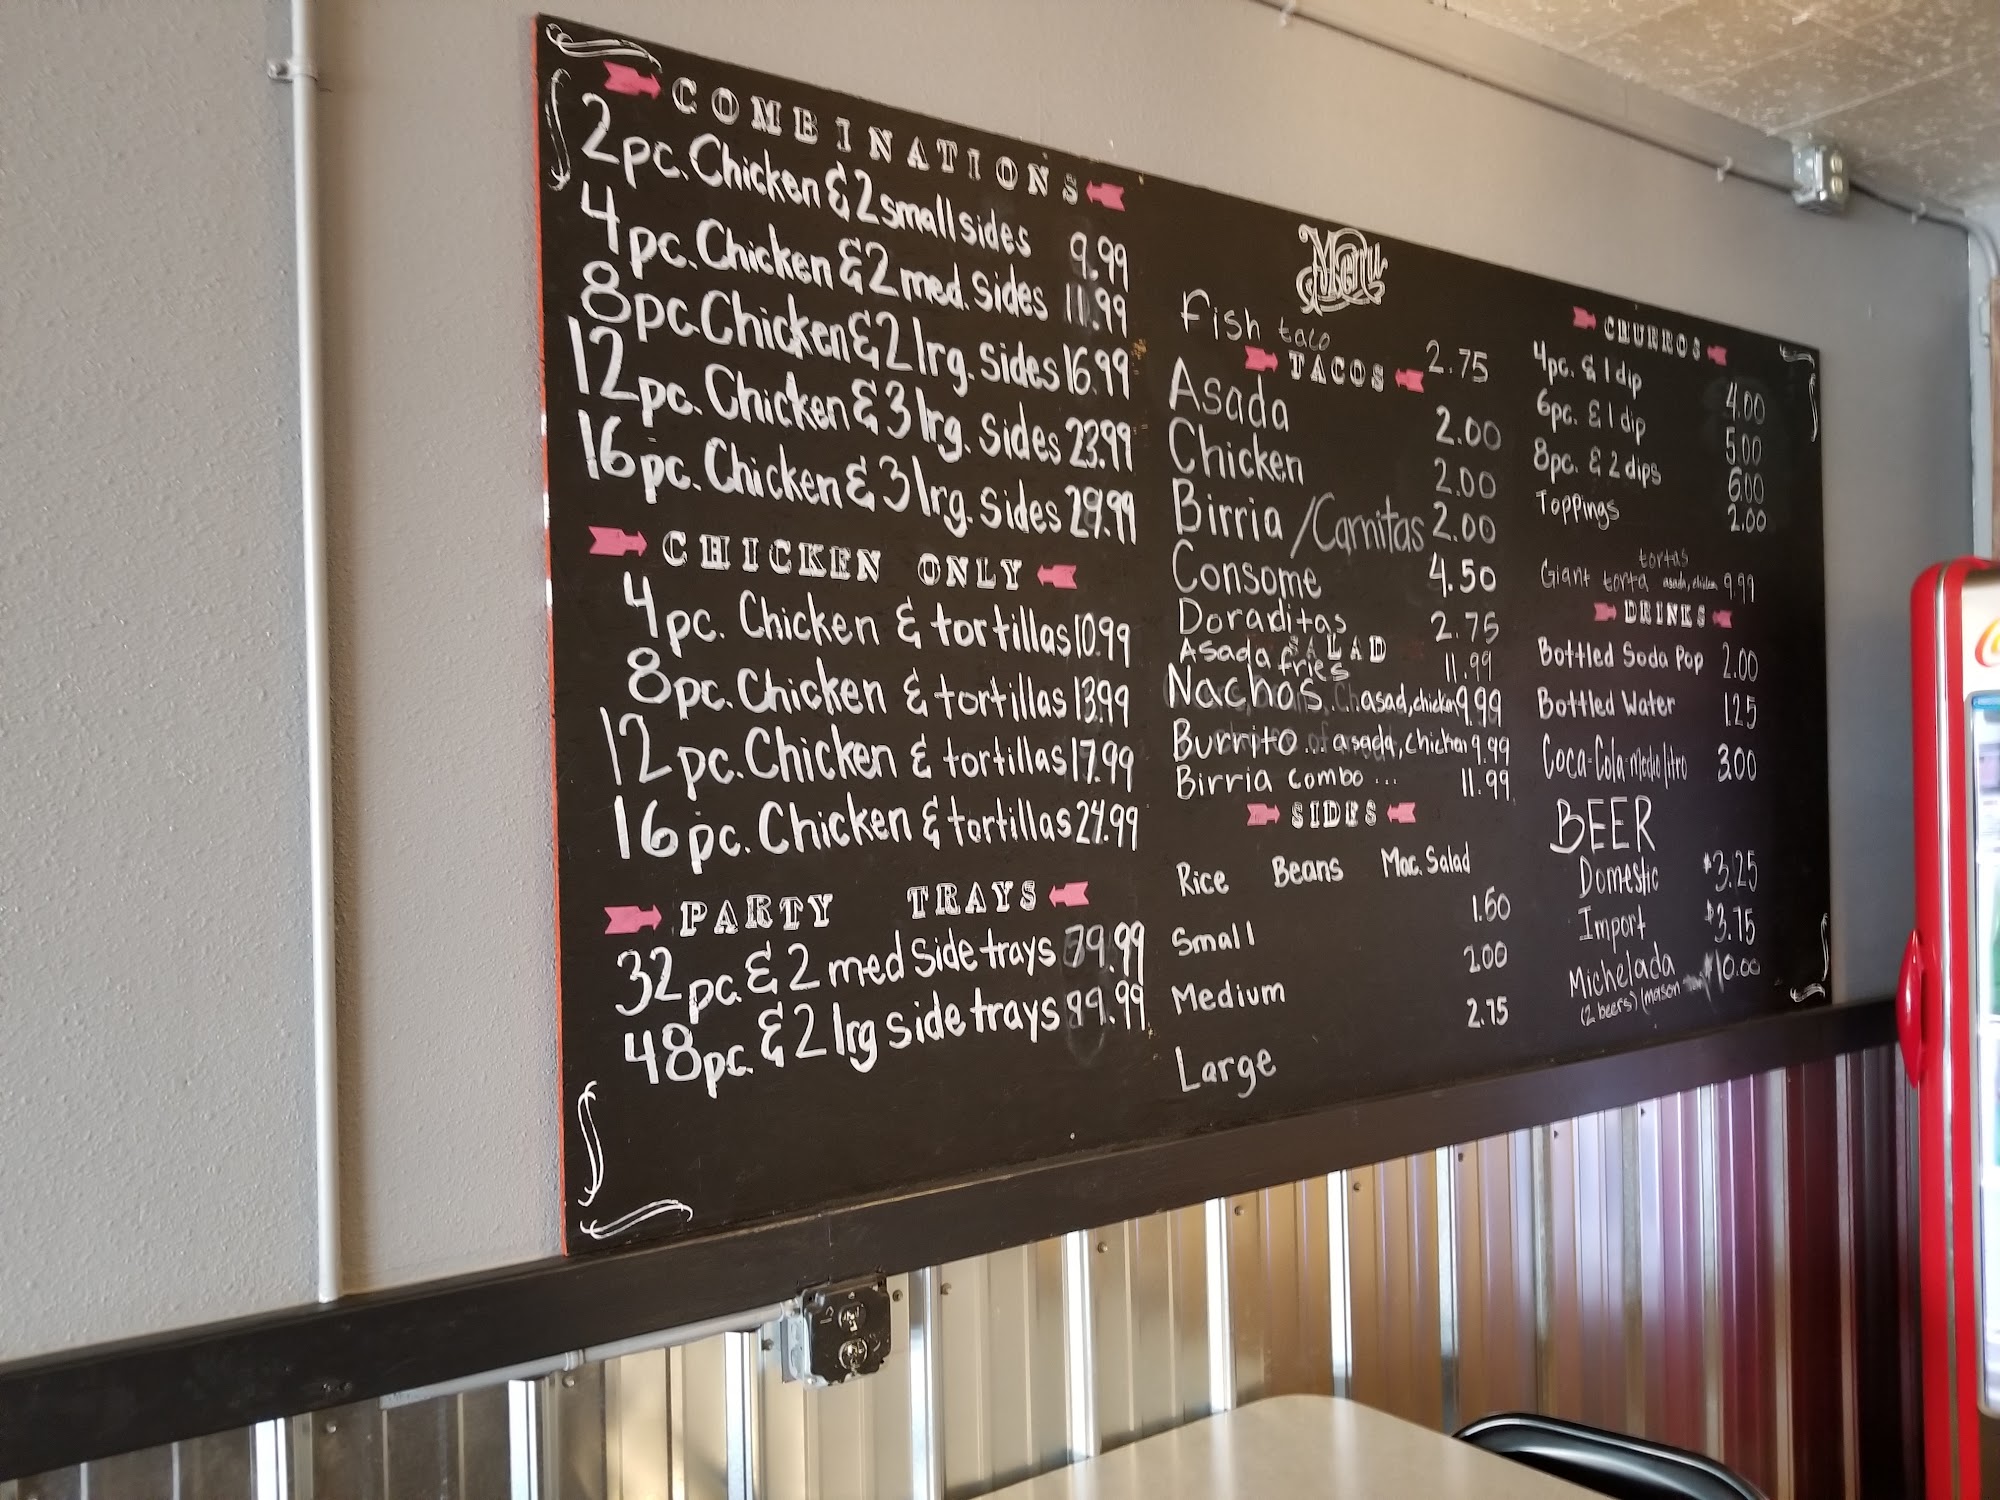 COMBINATIONS
2pc. Chicken & 2 small sides 9.99
4pc. Chicken & 2 med. sides 11.99
8pc. Chicken & 2 lrg. sides 16.99
12pc. Chicken & 3 lrg. sides 23.99
16pc. Chicken & 3 lrg. sides 29.99
CHICKEN ONLY
4pc. Chicken & tortillas 10.99
8pc. Chicken & tortillas 13.99
12pc. Chicken & tortillas 17.99
16pc. Chicken & tortillas 24.99
PARTY TRAYS
32pc. & 2 med side trays 79.99
48pc. & 2 lrg side trays 99.99
Menu
Fish taco 2.75
TACOS
Asada 2.00
Chicken 2.00
Birria / Carnitas 2.00
Consome 4.50
Doraditas 2.75
SALAD
Asada fries 11.99
Nachos .. asad, chicken 9.99
Burrito ... asada, chicken 9.99
Birria combo ... 11.99
SIDES
Rice Beans Mac. Salad
Small 1.50
Medium 2.00
Large 2.75
CHURROS
4pc. & 1 dip 4.00
6pc. & 1 dip 5.00
8pc. & 2 dips 6.00
Toppings 2.00
tortas
Giant torta asada, chicken 9.99
DRINKS
Bottled Soda Pop 2.00
Bottled Water 1.25
Coca-Cola-medio litro 3.00
BEER
Domestic $3.25
Import $3.75
Michelada $10.00
(2 beers) (mason